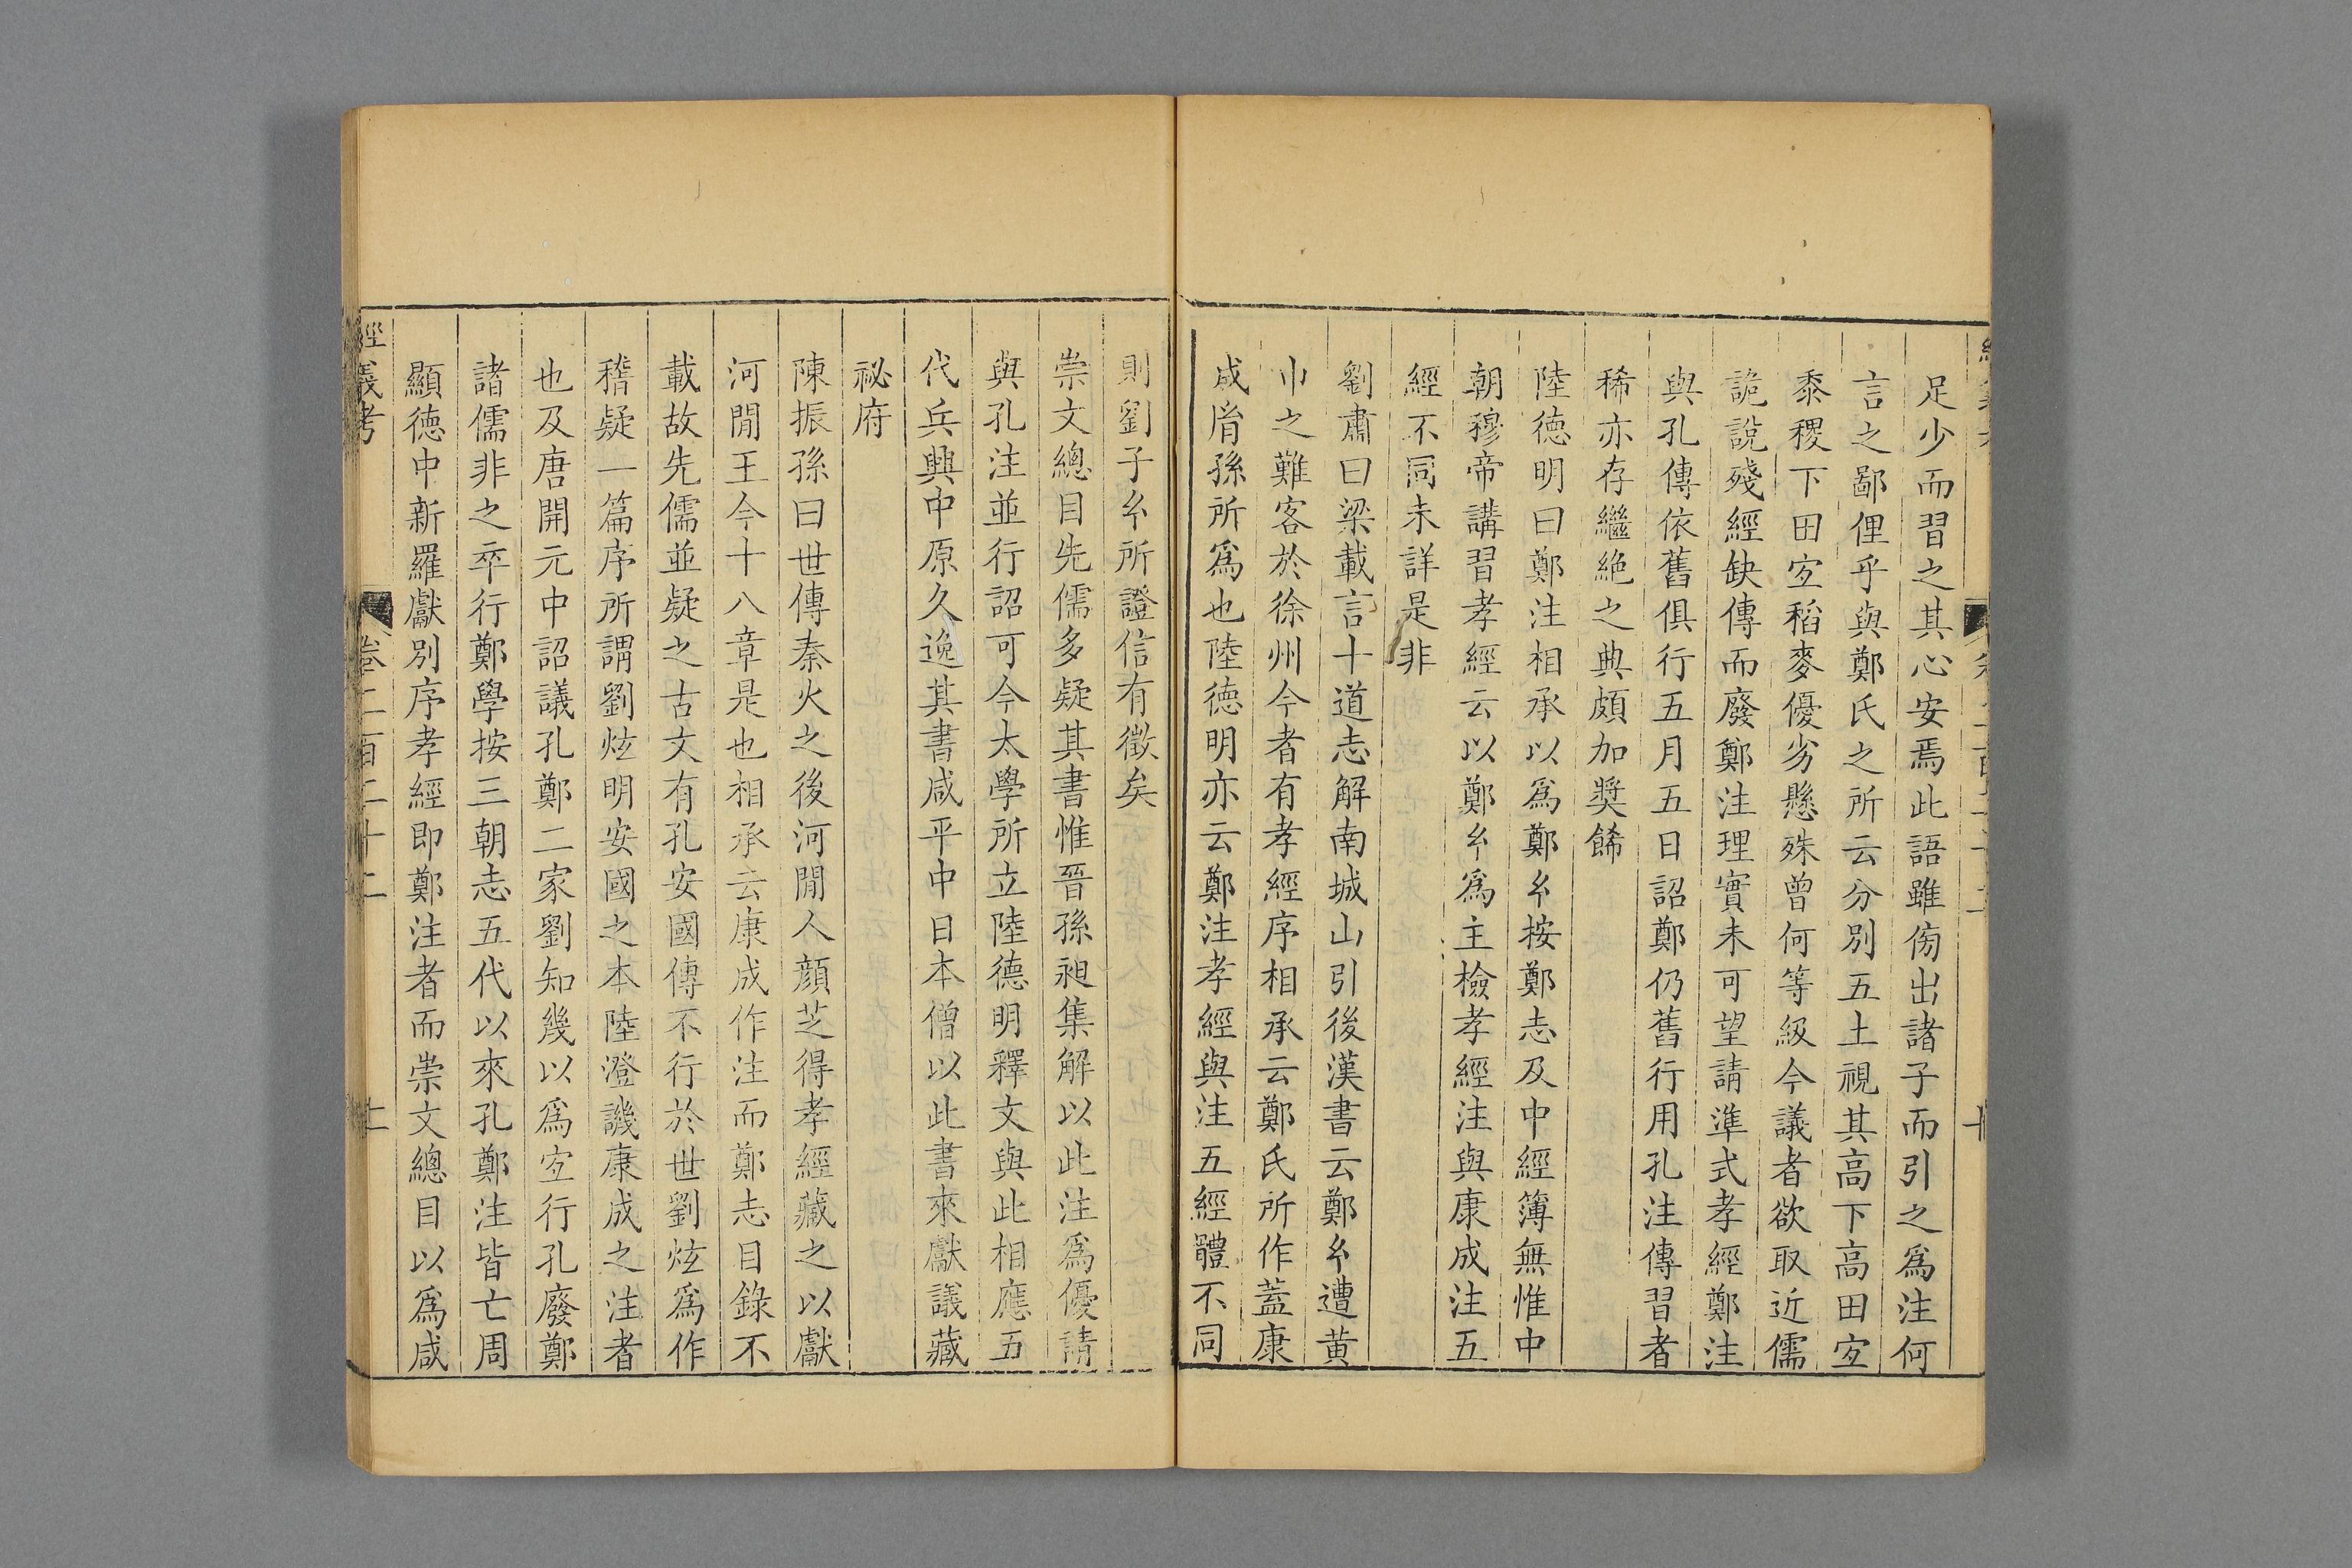 足少而習之其心安焉此語雖傍出諸子而引之爲注何
言之鄙俚乎與鄭氏之所云分別五土視其高下高田宐
黍稷下田宐稻麥優劣懸殊曾何等級今議者欲取近儒
詭說殘經缺傳而廢鄭注理實未可望請準式孝經鄭注
與孔傳依舊俱行五月五日詔鄭仍舊行用孔注傳習者
稀亦存繼絶之典頗加奬餙
陸德明曰鄭注相承以爲鄭𤣥按鄭志及中經簿無惟中
朝穆帝講習孝經云以鄭𤣥爲主檢孝經注與康成注五
經不同未詳是非
劉肅曰梁載言十道志解南城山引後漢書云鄭𤣥遭黄
巾之難客於徐州今者有孝經序相承云鄭氏所作蓋康
成胤孫所爲也陸德明亦云鄭注孝經與注五經體不同
則劉子𤣥所證信有徵矣
崇文總目先儒多疑其書惟晉孫昶集解以此注爲優請
與孔注並行詔可今太學所立陸德明釋文與此相應五
代兵興中原久逸其書咸平中日本僧以此書來獻議藏
祕府
陳振孫曰世傳秦火之後河閒人顔芝得孝經藏之以獻
河閒王今十八章是也相承云康成作注而鄭志目錄不
載故先儒並疑之古文有孔安國傳不行於世劉炫爲作
稽疑一篇序所謂劉炫明安國之本陸澄譏康成之注者
也及唐開元中詔議孔鄭二家劉知幾以爲宐行孔廢鄭
諸儒非之卒行鄭學按三朝志五代以來孔鄭注皆亡周
顯德中新羅獻別序孝經即鄭注者而崇文總目以爲咸
經義考
卷二百二十二